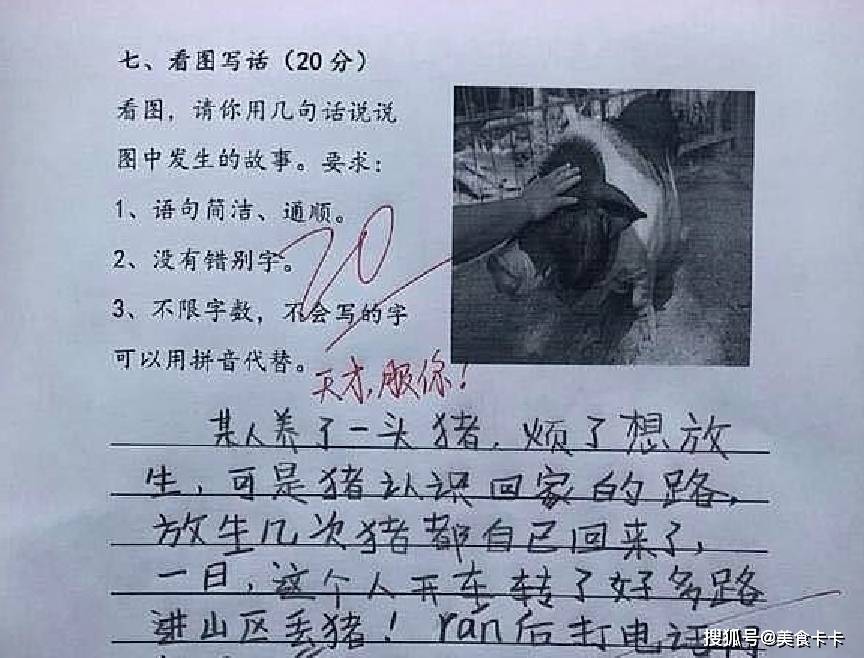 七、看图写话（20分）
看图，请你用几句话说说
图中发生的故事。要求：
1、语句简洁、通顺。
2、没有错别字。
3、不限字数，不会写的字
可以用拼音代替。
20
天才，服你！
某人养了一头猪，烦了想放
生，可是猪认识回家的路，
放生几次猪都自己回来了，
一日，这个人开车转了好多路
进山区丢猪！rán后打电话
搜狐号@美食卡卡